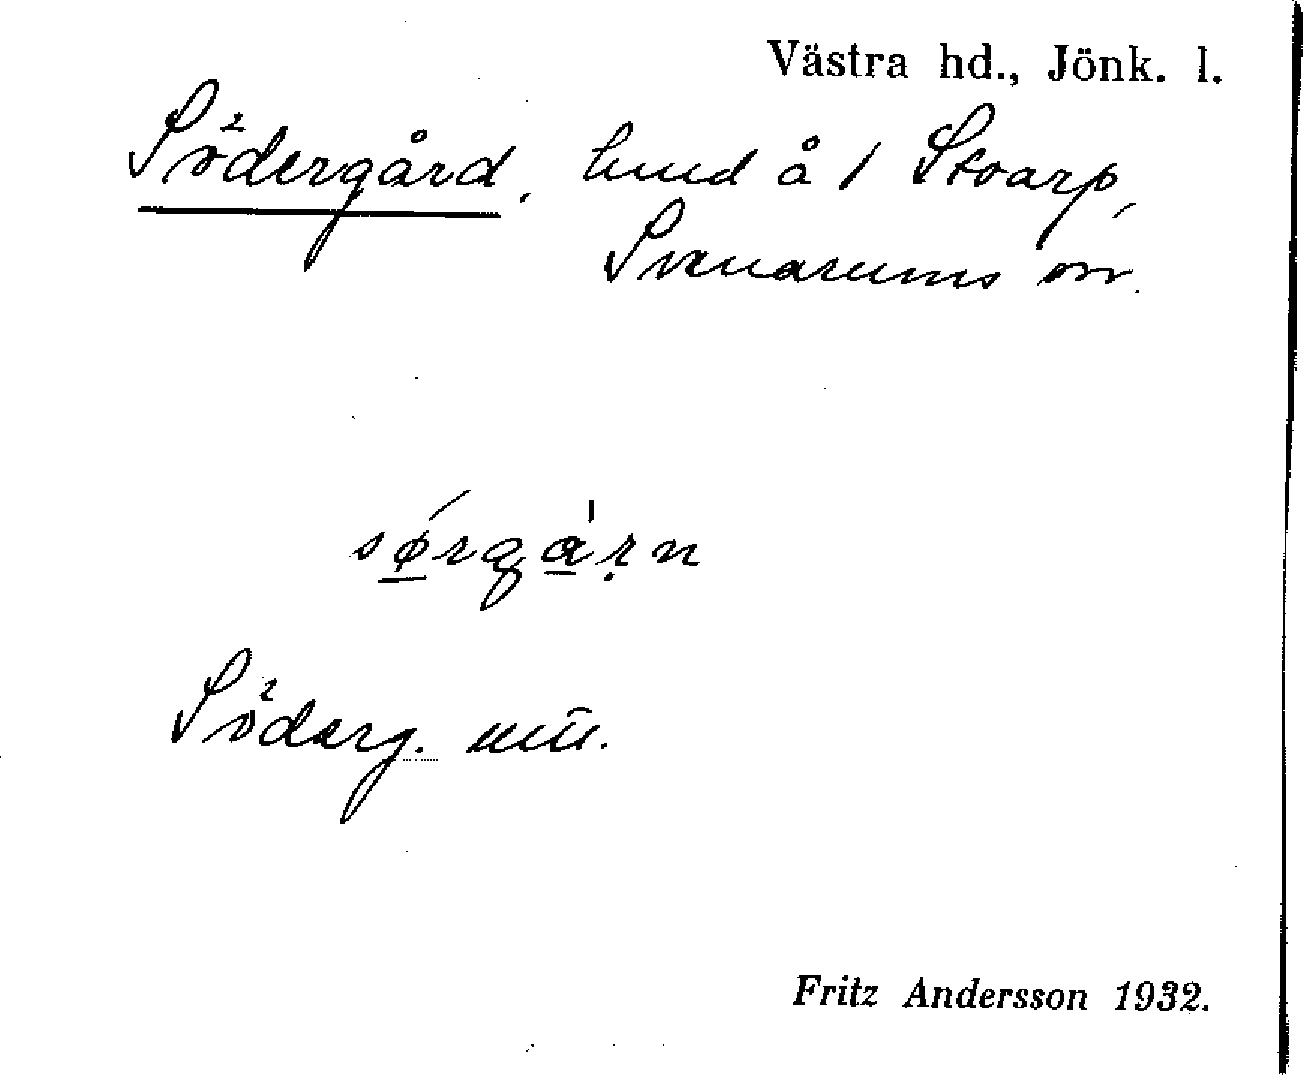 Västra hd., Jönk. l.
Södergård, hmd å 1 Stoarp,
Svenarums sn.
sørgạṛn
Söderg. mü.
Fritz Andersson 1932.